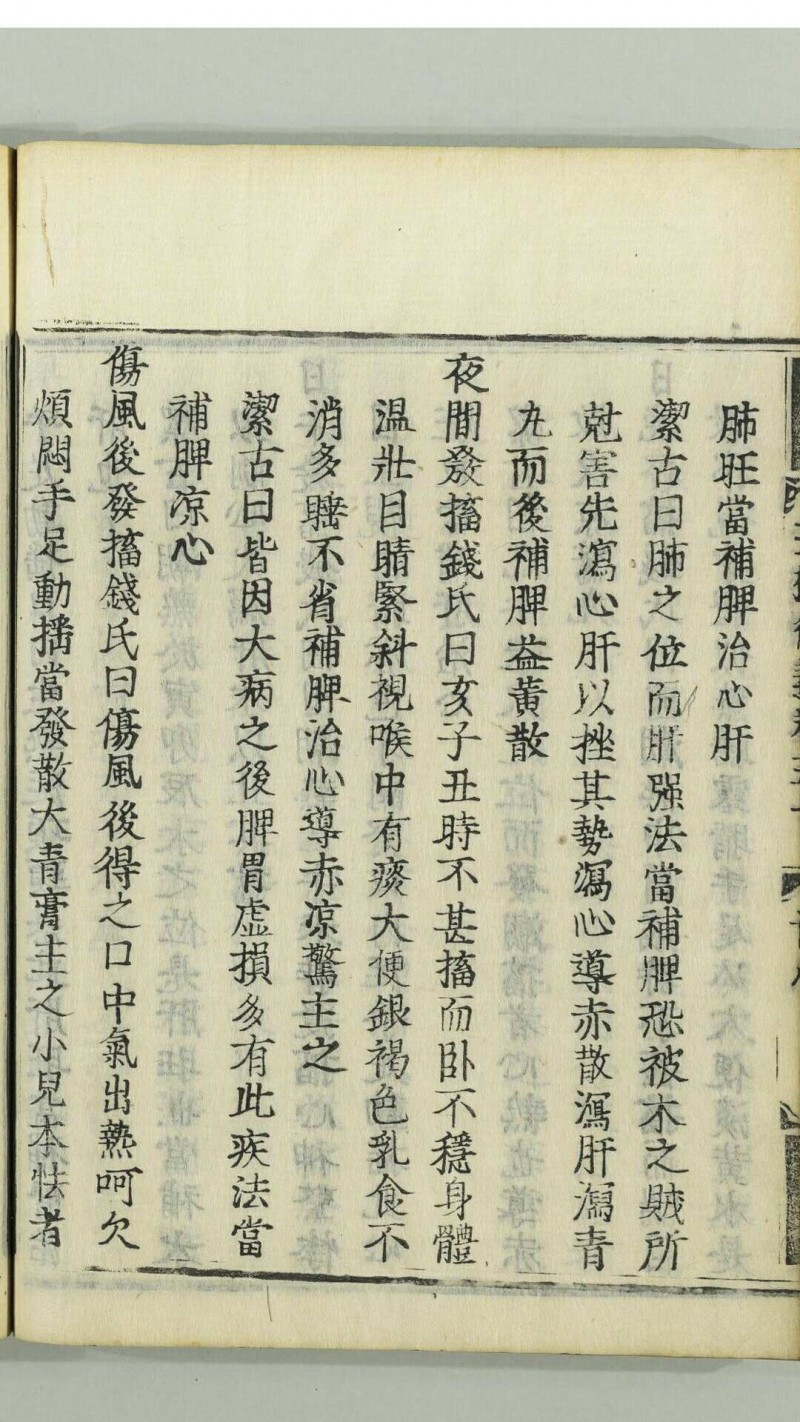 肺旺當補脾治心肝
潔古曰肺之位而肝强法當補脾恐被木之賊所
尅害先瀉心肝以挫其勢瀉心導赤散瀉肝瀉青
丸而後補脾益黃散
夜間發搐錢氏曰亥子丑時不甚搐而卧不穩身體
温壯目睛緊斜視喉中有痰大便銀褐色乳食不
消多睡不省補脾治心導赤凉驚主之
潔古曰皆因大病之後脾胃虛損多有此疾法當
補脾凉心
傷風後發搐錢氏曰傷風後得之口中氣出熱呵欠
煩悶手足動搐當發散大青膏主之小兒本怯者